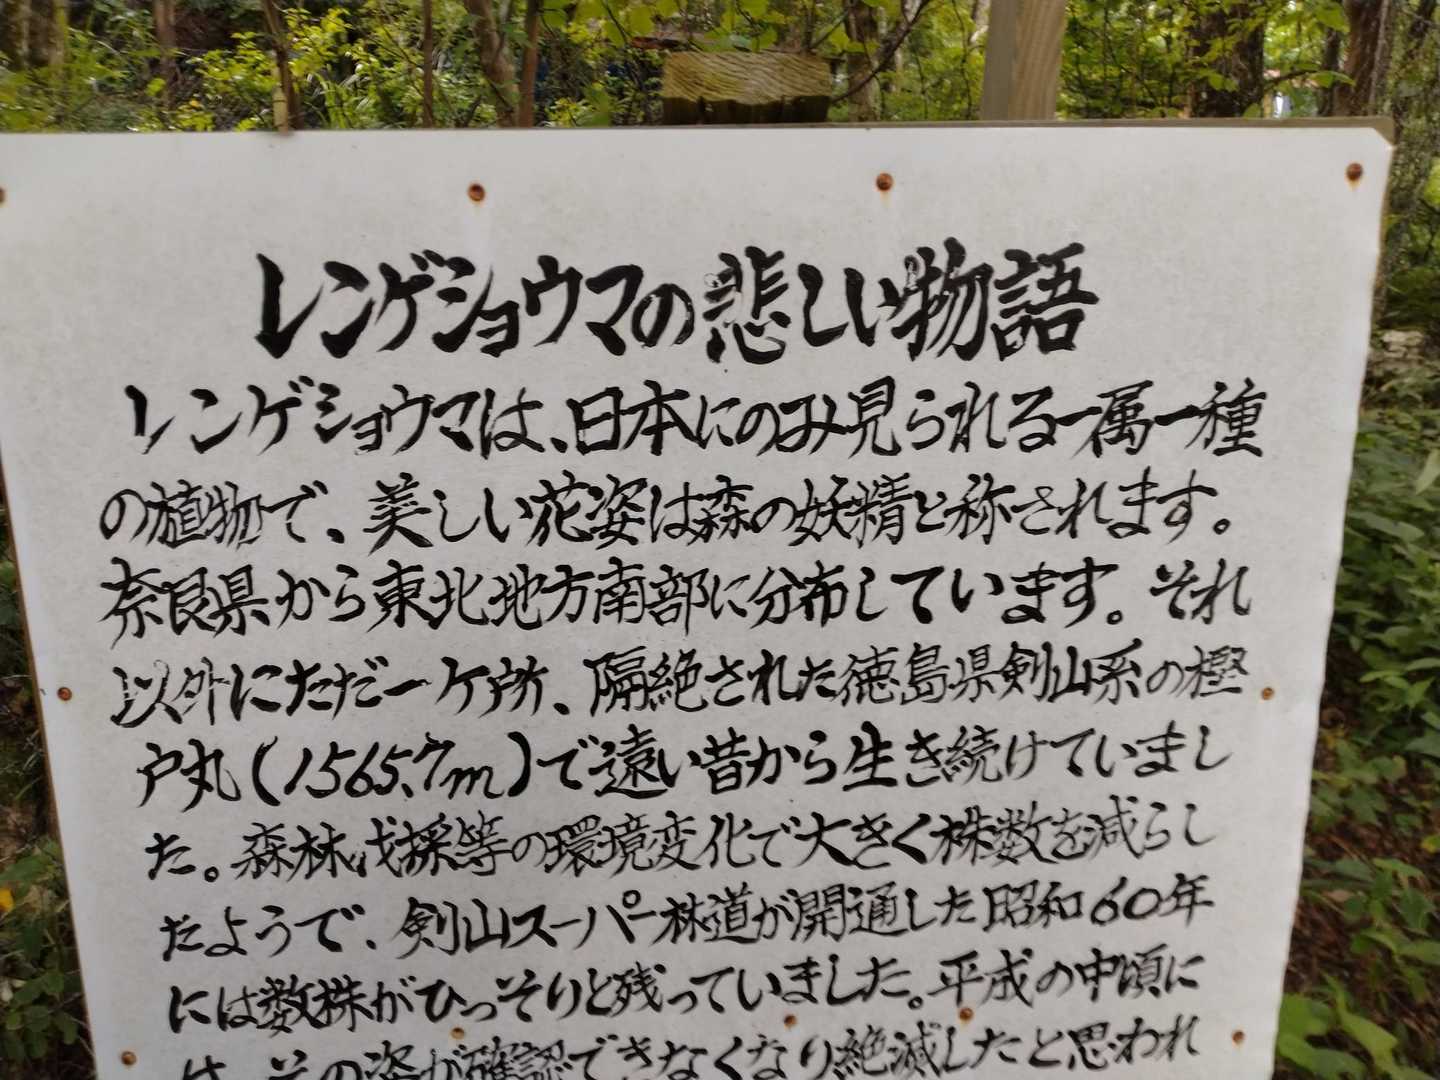 レンゲショウマの悲しい物語
レンゲショウマは、日本にのみ見られる一属一種
の植物で、美しい花姿は森の妖精と称されます。
奈良県から東北地方南部に分布しています。それ
以外にただ一ケ所、隔絶された徳島県剣山系の樫
戸丸(1565.7m)で遠い昔から生き続けていまし
た。森林伐採等の環境変化で大きく株数を減らし
たようで、剣山スーパー林道が開通した昭和60年
には数株がひっそりと残っていました。平成の中頃に
は、その姿が確認できなくなり絶滅したと思われ